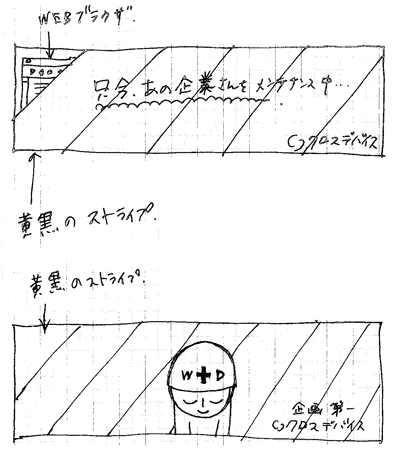 WEBブラウザ.
只今、あの企業さんをメンテナンス中…
クロスデバイス
黄黒のストライプ.
黄黒のストライプ.
W✚D
企画第一
クロスデバイス